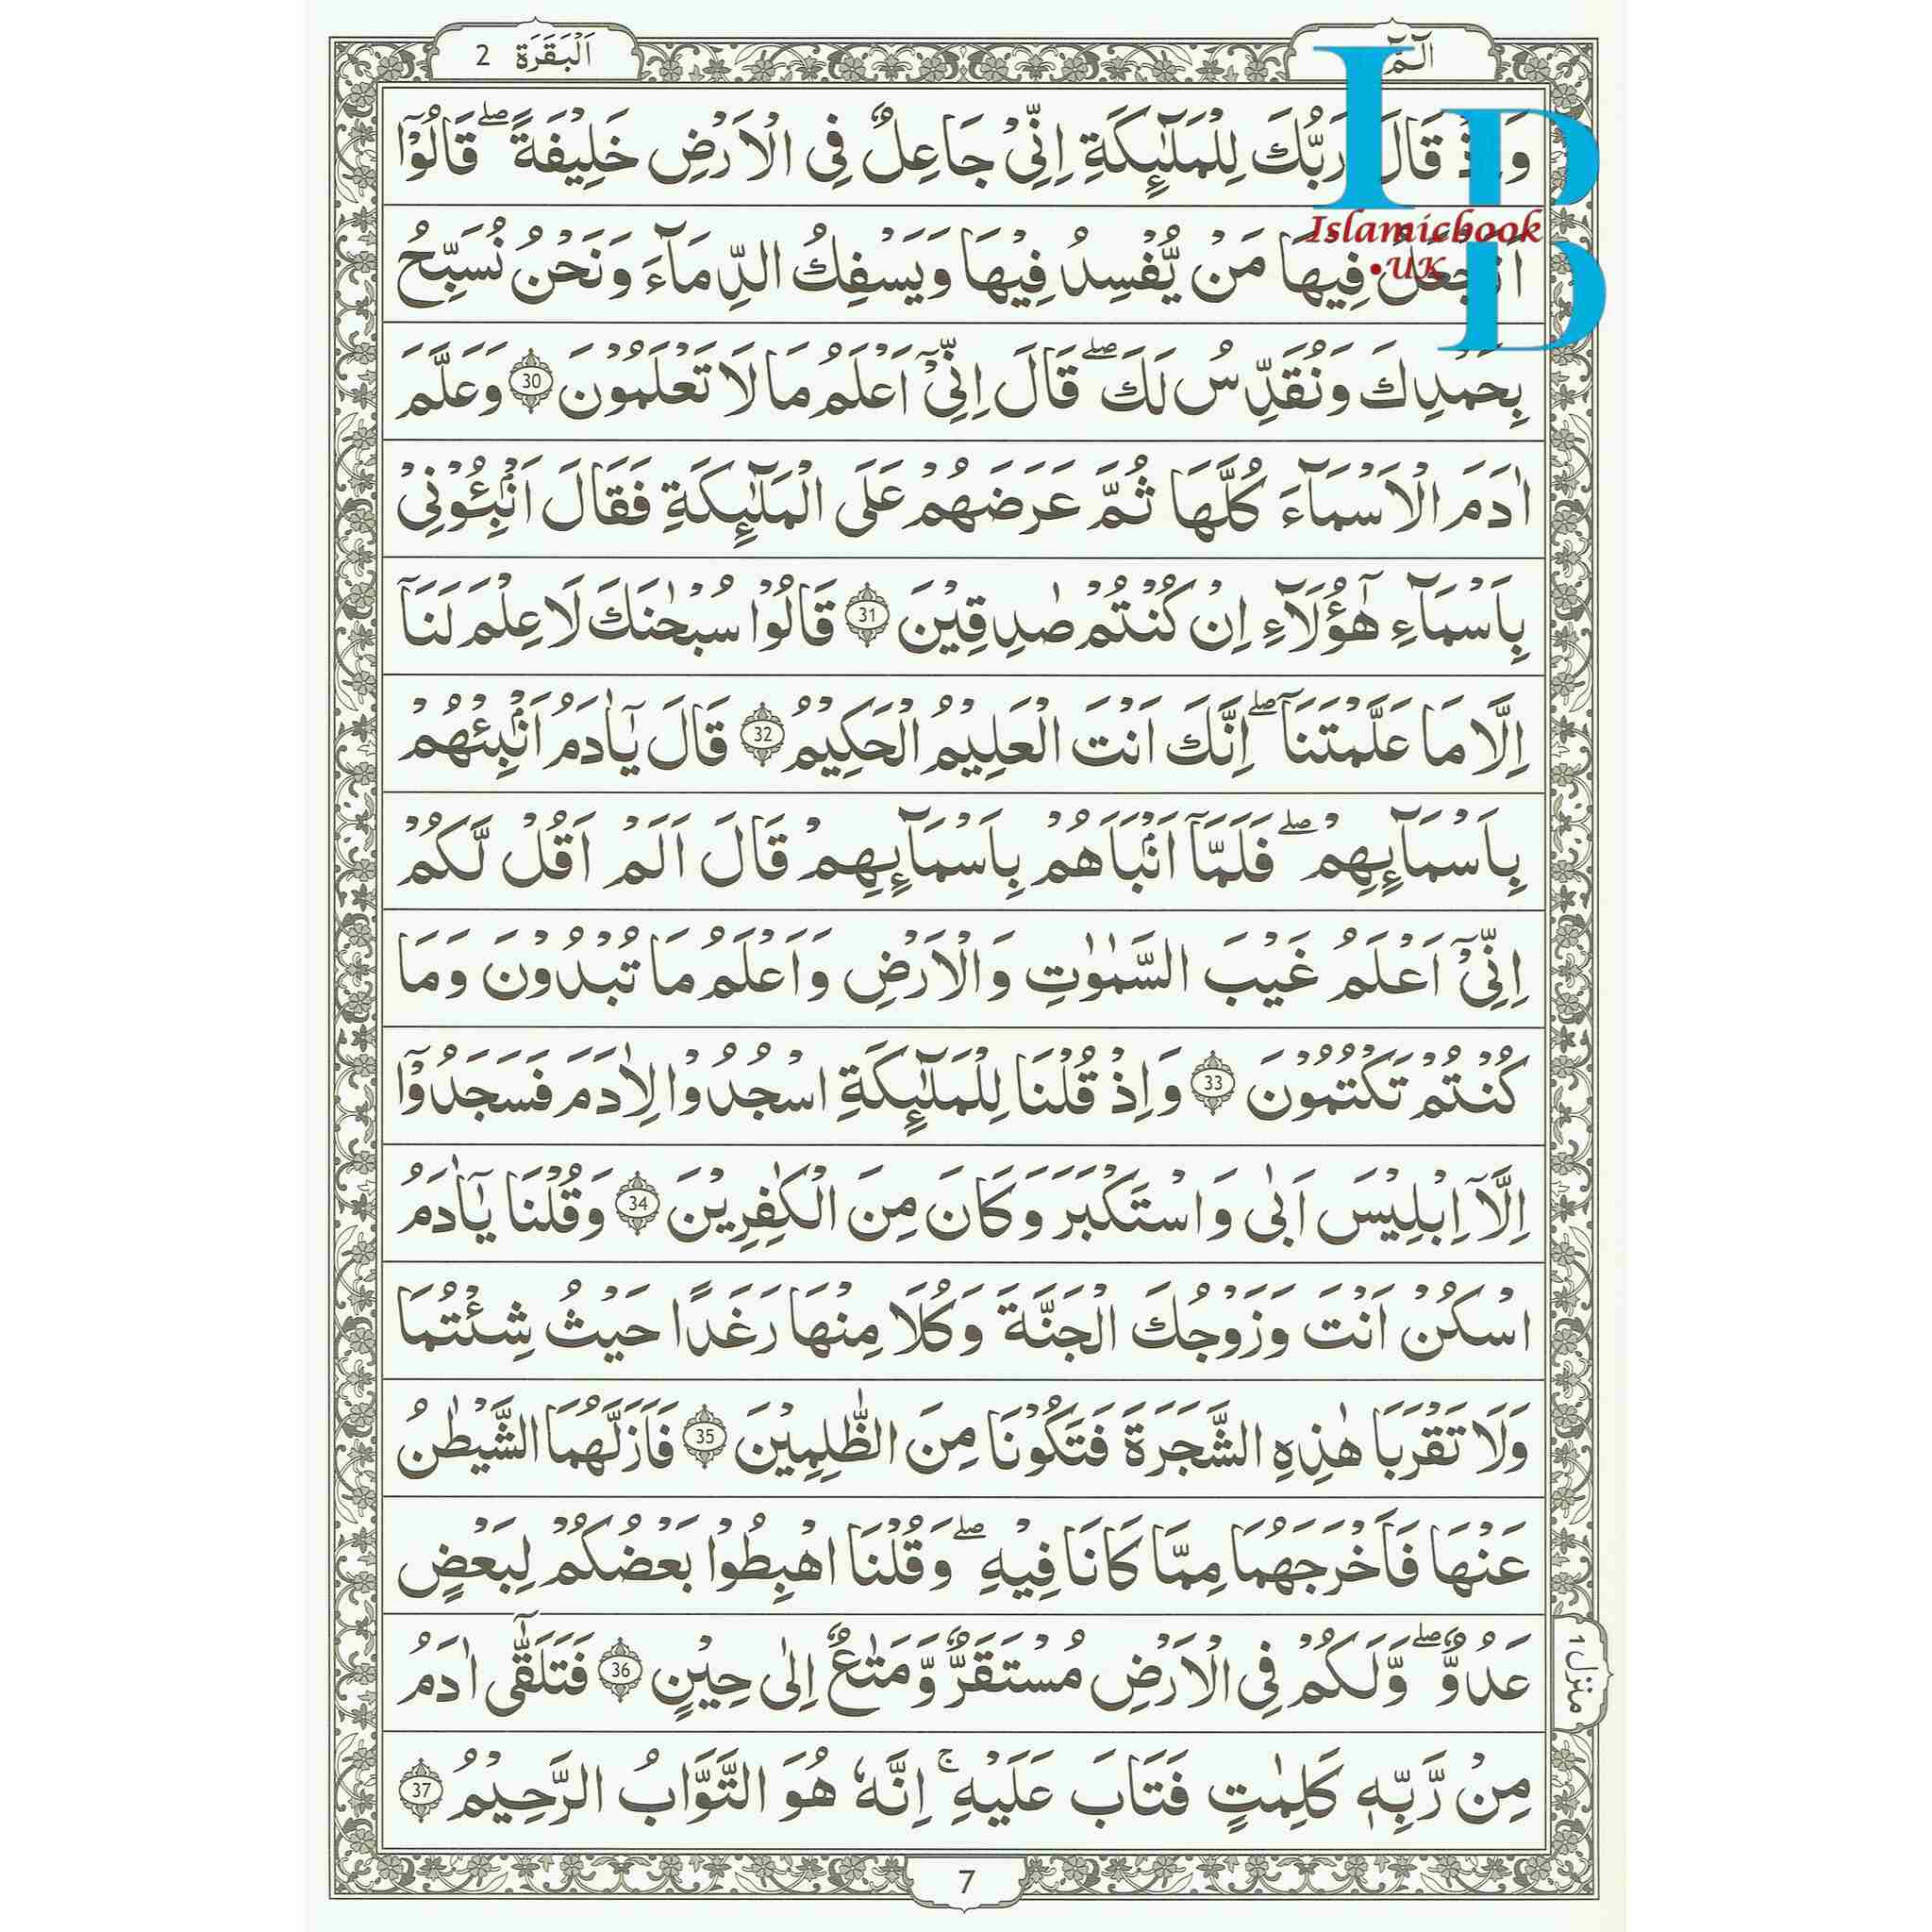 الٓمّٓ
اَلْبَقَرَة 2
وَاِذْ قَالَ رَبُّكَ لِلْمَلٰٓئِكَةِ اِنِّىْ جَاعِلٌ فِى الْاَرْضِ خَلِيْفَةً ۖ قَالُوْٓا
اَتَجْعَلُ فِيْهَا مَنْ يُّفْسِدُ فِيْهَا وَيَسْفِكُ الدِّمَآءَ وَنَحْنُ نُسَبِّحُ
بِحَمْدِكَ وَنُقَدِّسُ لَكَ ۖ قَالَ اِنِّىْٓ اَعْلَمُ مَا لَا تَعْلَمُوْنَ 30 وَعَلَّمَ
اٰدَمَ الْاَسْمَآءَ كُلَّهَا ثُمَّ عَرَضَهُمْ عَلَى الْمَلٰٓئِكَةِ فَقَالَ اَنْۢبِئُوْنِىْ
بِاَسْمَآءِ هٰٓؤُلَآءِ اِنْ كُنْتُمْ صٰدِقِيْنَ 31 قَالُوْا سُبْحٰنَكَ لَا عِلْمَ لَنَآ
اِلَّا مَا عَلَّمْتَنَآ ۖ اِنَّكَ اَنْتَ الْعَلِيْمُ الْحَكِيْمُ 32 قَالَ يٰٓاٰدَمُ اَنْۢبِئْهُمْ
بِاَسْمَآئِهِمْ ۖ فَلَمَّآ اَنْۢبَاَهُمْ بِاَسْمَآئِهِمْ قَالَ اَلَمْ اَقُلْ لَّكُمْ
اِنِّىْٓ اَعْلَمُ غَيْبَ السَّمٰوٰتِ وَالْاَرْضِ وَاَعْلَمُ مَا تُبْدُوْنَ وَمَا
كُنْتُمْ تَكْتُمُوْنَ 33 وَاِذْ قُلْنَا لِلْمَلٰٓئِكَةِ اسْجُدُوْا لِاٰدَمَ فَسَجَدُوْٓا
اِلَّآ اِبْلِيْسَ اَبٰى وَاسْتَكْبَرَ وَكَانَ مِنَ الْكٰفِرِيْنَ 34 وَقُلْنَا يٰٓاٰدَمُ
اسْكُنْ اَنْتَ وَزَوْجُكَ الْجَنَّةَ وَكُلَا مِنْهَا رَغَدًا حَيْثُ شِئْتُمَا
وَلَا تَقْرَبَا هٰذِهِ الشَّجَرَةَ فَتَكُوْنَا مِنَ الظّٰلِمِيْنَ 35 فَاَزَلَّهُمَا الشَّيْطٰنُ
عَنْهَا فَاَخْرَجَهُمَا مِمَّا كَانَا فِيْهِ ۖ وَقُلْنَا اهْبِطُوْا بَعْضُكُمْ لِبَعْضٍ
عَدُوٌّ ۖ وَّلَكُمْ فِى الْاَرْضِ مُسْتَقَرٌّ وَّمَتٰعٌ اِلٰى حِيْنٍ 36 فَتَلَقّٰٓى اٰدَمُ
مِنْ رَّبِّهٖ كَلِمٰتٍ فَتَابَ عَلَيْهِ ۚ اِنَّهٗ هُوَ التَّوَّابُ الرَّحِيْمُ 37
منزل ۱
7
IBD
Islamicbook
.UK